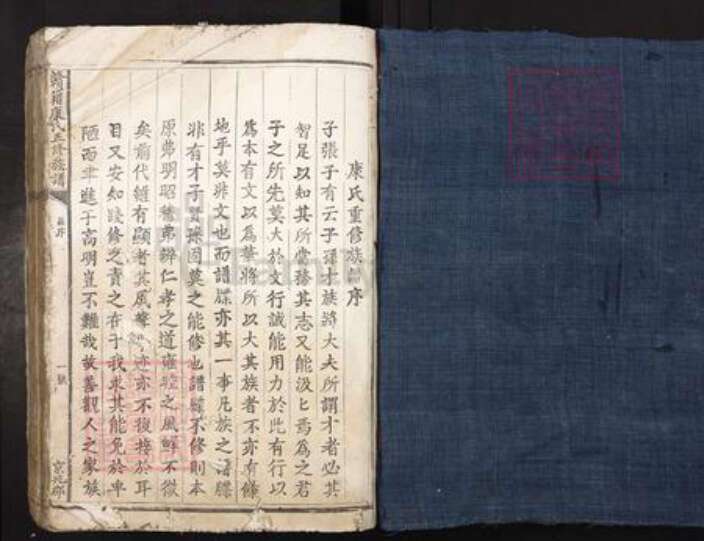 康氏重修族譜序
子張子有云子孫才族將大夫所謂才者必其
智足以知其所當務其志又能汲匕焉為之君
子之所先莫大於文行誠能用力於此有行以
為本有文以為華將所以大其族者不亦有條
地乎莫非文也而譜牒亦其一事凡族之譜牒
非有才子賢孫固莫之能修也譜牒不修則本
原弗明昭穆弗辨仁孝之道雍睦之風鮮不微
矣前代雖有顯者其風聲 迹亦不復接於耳
目又安知踐修之責之在于我求其能免於卑
陋而非進于高明豈不難哉故善觀人之家族
康氏五修族譜
一號
京兆郡